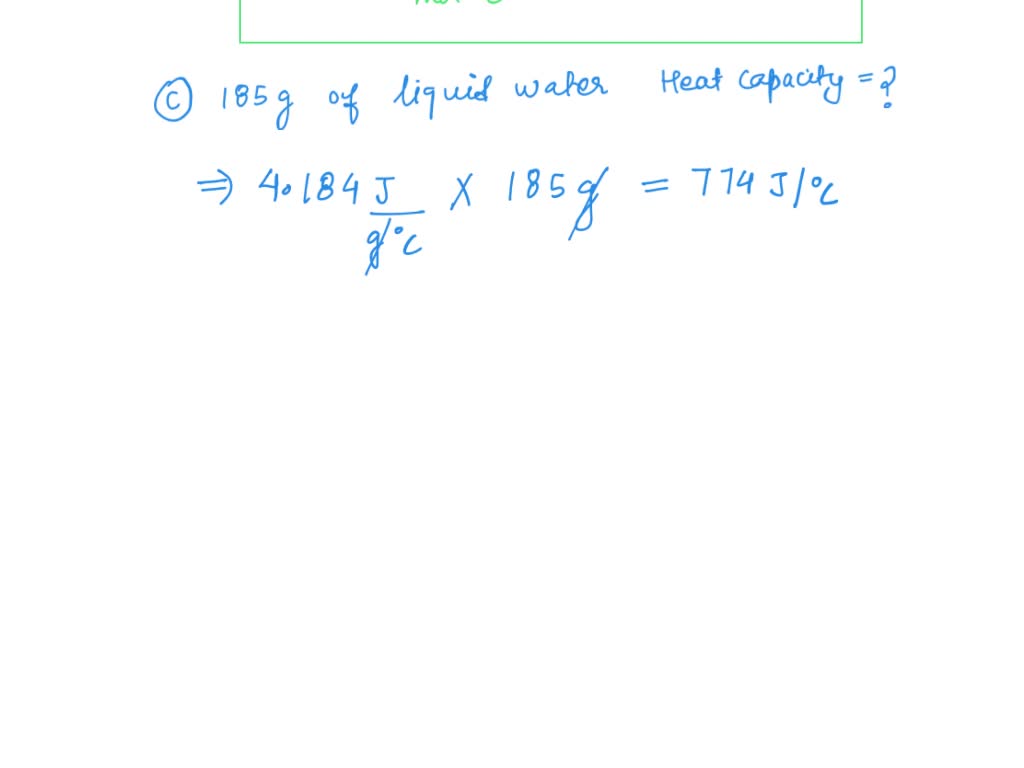 Ⓒ 185g of liquid water Heat Capacity = ?
⇒ 4.184 J/g°C X 185g = 774 J/°C